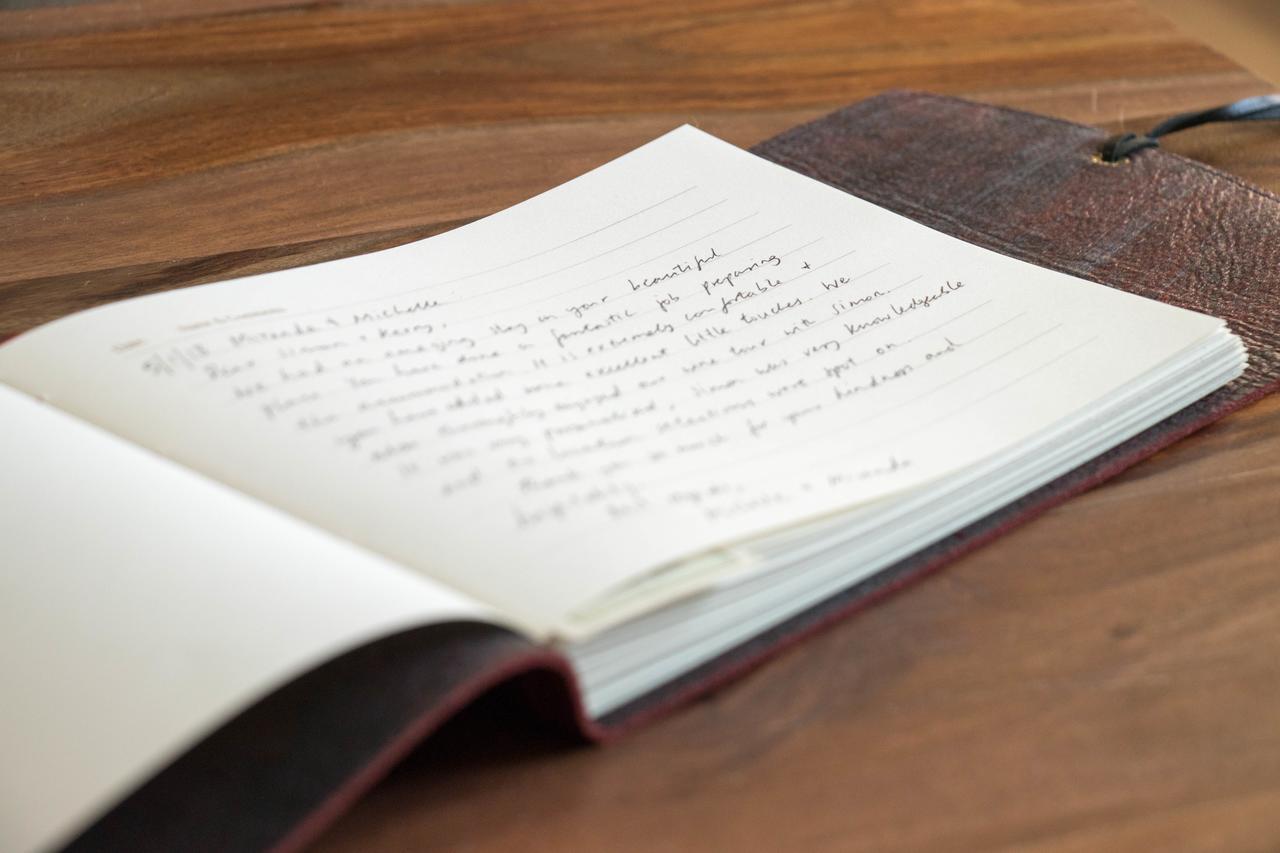 Miranda & Michelle
Dear Simon & Kerry,
We had an amazing stay in your beautiful
place. You have done a fantastic job preparing
the accommodation. It is extremely comfortable +
you have added some excellent little touches. We
also thoroughly enjoyed our wine tour with Simon.
It was very personalised, Simon was very knowledgeable
and the location selections were spot on.
Thank you so much for your kindness and
hospitality.
Michelle + Miranda